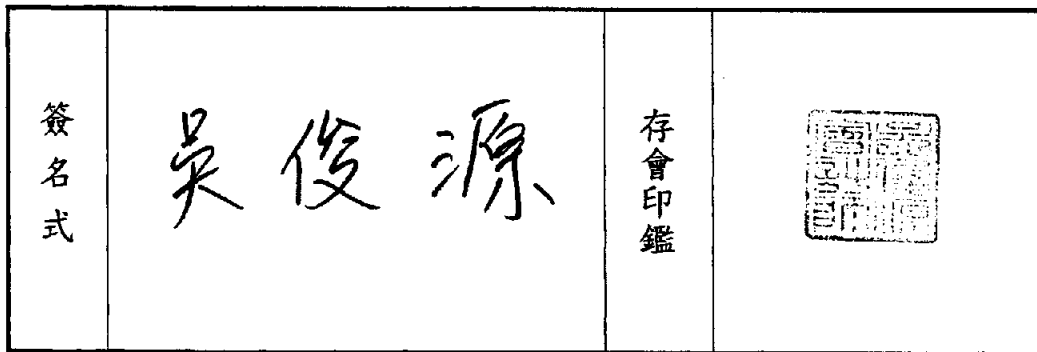 簽名式
吳俊源
存會印鑑